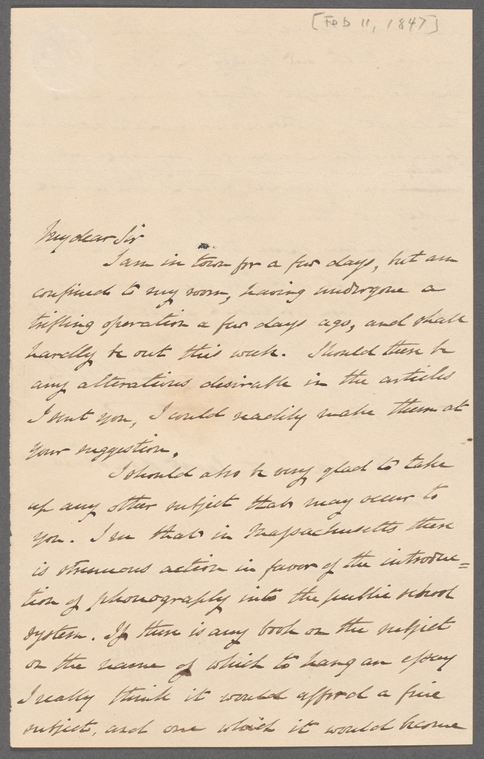 [Feb 11, 1847]
My dear Sir
I am in town for a few days, but am
confined to my room, having undergone a
trifling operation a few days ago, and shall
hardly be out this week. Should there be
any alterations desirable in the articles
I sent you, I could readily make them at
your suggestion.
I should also be very glad to take
up any other subject that may occur to
you. I see that in Massachusetts there
is strenuous action in favor of the introduc=
tion of phonography into the public school
system. If there is any book on the subject
on the name of which to hang an essay
I really think it would afford a fine
subject, and one which it would become